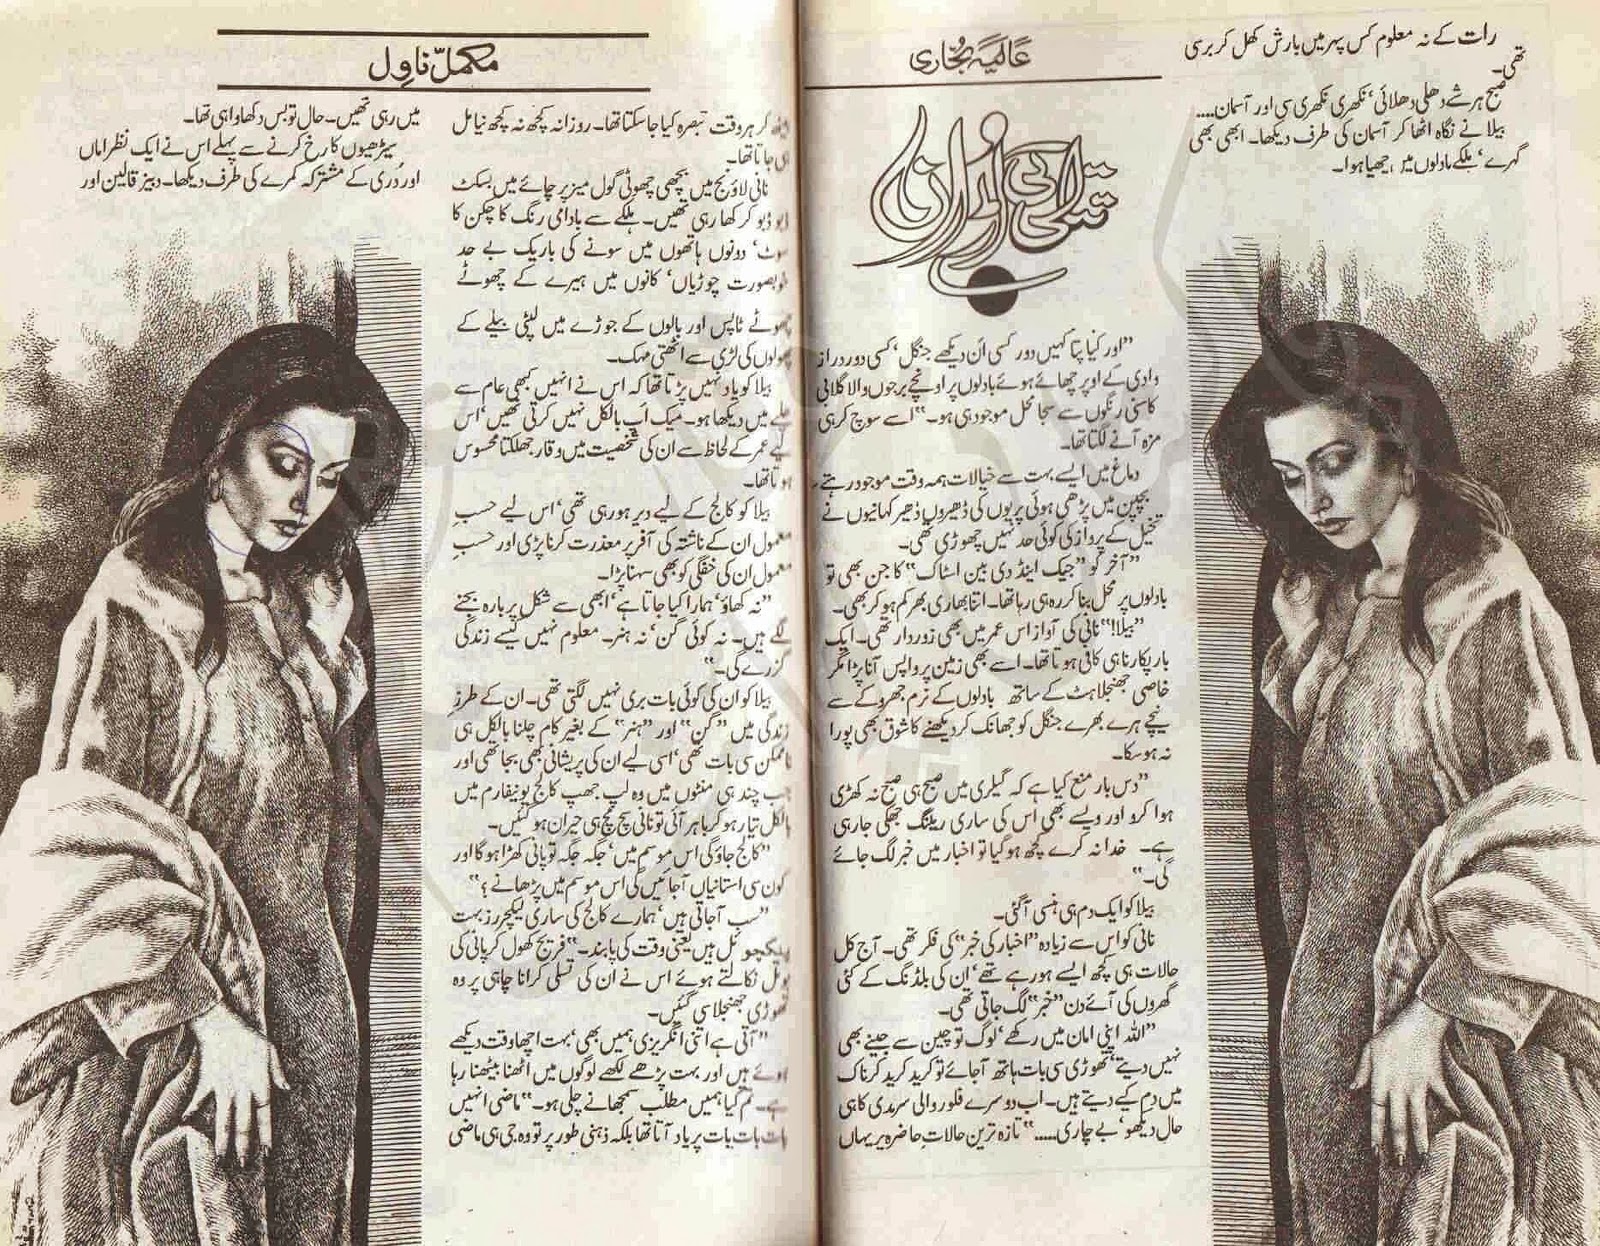 رات کے نہ معلوم کس پہر میں بارش کھل کر برسی
تھی۔
صبح ہر شے دھلی دھلائی‘ نکھری نکھری سی اور آسمان....
بیلا نے نگاہ اٹھا کر آسمان کی طرف دیکھا۔ ابھی بھی
گہرے‘ ہلکے بادلوں میں چھپا ہوا۔
عالیہ بخاری
تتلی کی اڑان
”اور کیا پتا کہیں دور کسی ان دیکھے جنگل‘ کسی دور دراز
وادی کے اوپر چھائے ہوئے بادلوں پر اونچے برجوں والا گلابی
کاسنی رنگوں سے سجا محل موجود ہی ہو۔“ اسے سوچ کر ہی
مزہ آنے لگتا تھا۔
دماغ میں ایسے بہت سے خیالات ہمہ وقت موجود رہتے۔
بچپن میں پڑھی ہوئی پریوں کی ڈھیروں ڈھیر کہانیوں نے
تخیل کے پرواز کی کوئی حد نہیں چھوڑی تھی۔
”آخر کو ”جیک اینڈ دی بین اسٹاک“ کا جن بھی تو
بادلوں پر محل بنا کر رہ ہی رہا تھا۔ اتنا بھاری بھر کم ہو کر بھی۔
”بیلا!“ نانی کی آواز اس عمر میں بھی زوردار تھی۔ ایک
بار پکارنا ہی کافی ہوتا تھا۔ اسے بھی زمین پر واپس آنا پڑا مگر
خاصی جھنجلاہٹ کے ساتھ بادلوں کے نرم جھروکے سے
نیچے ہرے بھرے جنگل کو جھانک کر دیکھنے کا شوق بھی پورا
نہ ہو سکا۔
”دس بار منع کیا ہے کہ گیلری میں صبح ہی صبح نہ کھڑی
ہوا کرو اور ویسے بھی اس کی ساری ریلنگ جھکی جا رہی
ہے۔ خدا نہ کرے کچھ ہو گیا تو اخبار میں خبر لگ جائے
گی۔“
بیلا کو ایک دم ہی ہنسی آ گئی۔
نانی کو اس سے زیادہ ”اخبار کی خبر“ کی فکر تھی۔ آج کل
حالات ہی کچھ ایسے ہو رہے تھے‘ ان کی بلڈنگ کے کئی
گھروں کی آئے دن ”خبر“ لگ جاتی تھی۔
”اللہ اپنی امان میں رکھے‘ لوگ تو چین سے جینے بھی
نہیں دیتے‘ تھوڑی سی بات ہاتھ آ جائے تو کرید کرید کر ناک
میں دم کیے دیتے ہیں۔ اب دوسرے فلور والی سرمدی کا ہی
حال دیکھو‘ بے چاری.....“ تازہ ترین حالات حاضرہ پر یہاں
مکمل ناول
کر ہر وقت تبصرہ کیا جا سکتا تھا۔ روزانہ کچھ نہ کچھ نیا مل
ہی جاتا تھا۔
نانی لاؤنج میں بچھی چھوٹی گول میز پر چائے میں بسکٹ
ڈبو ڈبو کر کھا رہی تھیں۔ ہلکے سے بادامی رنگ کا چکن کا
سوٹ‘ دونوں ہاتھوں میں سونے کی باریک بے حد
خوبصورت چوڑیاں‘ کانوں میں ہیرے کے چھوٹے
چھوٹے ٹاپس اور بالوں کے جوڑے میں لپٹی بیلے کے
پھولوں کی لڑی سے اٹھتی مہک۔
بیلا کو یاد نہیں پڑتا تھا کہ اس نے انہیں کبھی عام سے
حلیے میں دیکھا ہو۔ میک اپ بالکل نہیں کرتی تھیں‘ اس
لیے عمر کے لحاظ سے ان کی شخصیت میں وقار جھلکتا محسوس
ہوتا تھا۔
بیلا کو کالج کے لیے دیر ہو رہی تھی‘ اس لیے حسبِ
معمول ان کے ناشتہ کی آفر پر معذرت کرنا پڑی اور حسبِ
معمول ان کی خفگی کو بھی سہنا پڑا۔
”نہ کھاؤ‘ ہمارا کیا جاتا ہے‘ ابھی سے شکل پر بارہ بجنے
لگے ہیں۔ نہ کوئی گن‘ نہ ہنر۔ معلوم نہیں کیسے زندگی
گزرے گی۔“
بیلا کو ان کی کوئی بات بری نہیں لگتی تھی۔ ان کے طرزِ
زندگی میں ”گن“ اور ”ہنر“ کے بغیر کام چلنا بالکل ہی
ناممکن سی بات تھی‘ اسی لیے ان کی پریشانی بھی بجا تھی اور
جب چند ہی منٹوں میں وہ لپ جھپ کالج یونیفارم میں
بالکل تیار ہو کر باہر آئی تو نانی سچ مچ ہی حیران ہو گئیں۔
”کالج جاؤ گی اس موسم میں‘ جگہ جگہ تو پانی کھڑا ہو گا اور
کون سی استانیاں آ جائیں گی اس موسم میں پڑھانے؟“
”سب آ جاتی ہیں‘ ہمارے کالج کی ساری لیکچررز بہت
پنکچوئل ہیں یعنی وقت کی پابند۔“ فریج کھول کر پانی کی
بوتل نکالتے ہوئے اس نے ان کی تسلی کرانا چاہی پر وہ
تھوڑی جھنجلا سی گئیں۔
”آتی ہے اتنی انگریزی ہمیں بھی‘ بہت اچھا وقت دیکھے
ہوئے ہیں اور بہت پڑھے لکھے لوگوں میں اٹھنا بیٹھنا رہا
ہے۔ تم کیا ہمیں مطلب سمجھانے چلی ہو۔“ ماضی انہیں
بات بات پر یاد آتا تھا بلکہ ذہنی طور پر تو وہ جی ہی ماضی
میں رہی تھیں۔ حال تو بس دکھاوا ہی تھا۔
سیڑھیوں کا رخ کرنے سے پہلے اس نے ایک نظر اماں
اور دُری کے مشترکہ کمرے کی طرف دیکھا۔ دبیز قالین اور